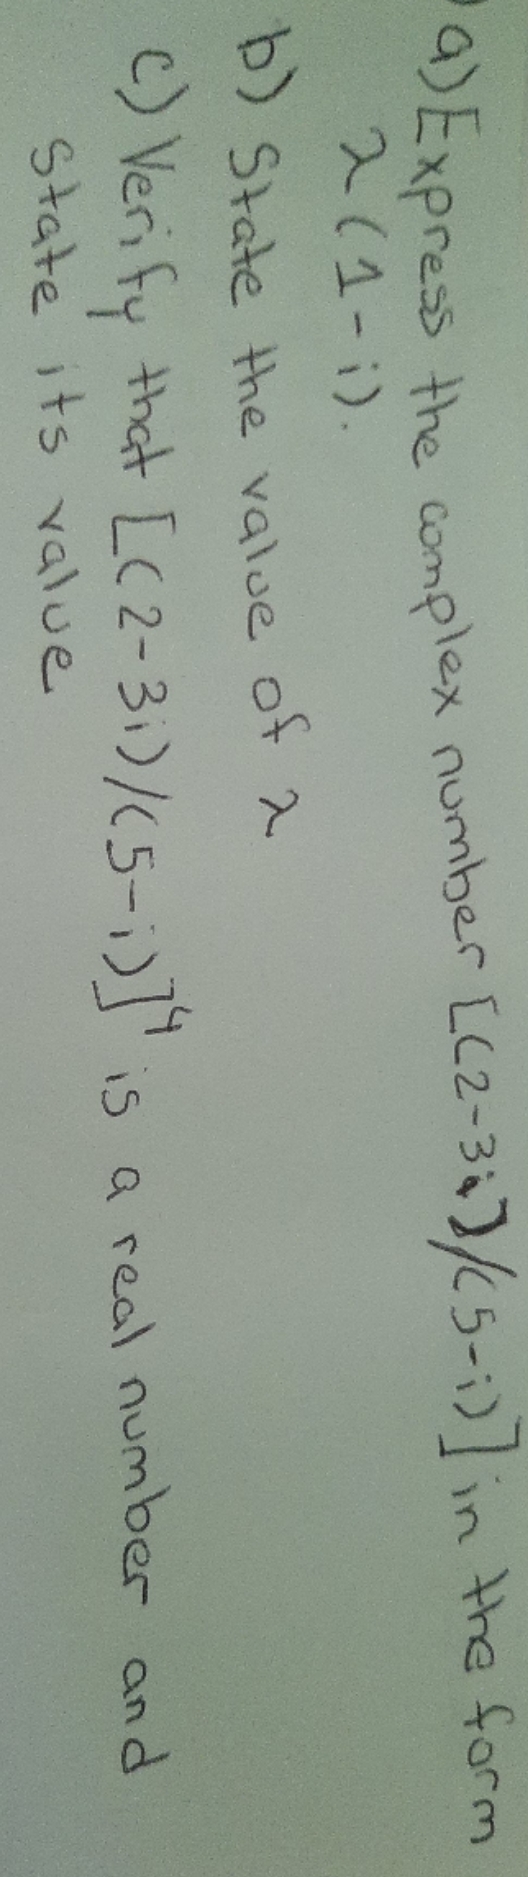 a) Express the complex number [(2-3i)/(5-i)] in the form
λ(1-i).
b) State the value of λ
c) Verify that [(2-3i)/(5-i)]⁴ is a real number and
state its value